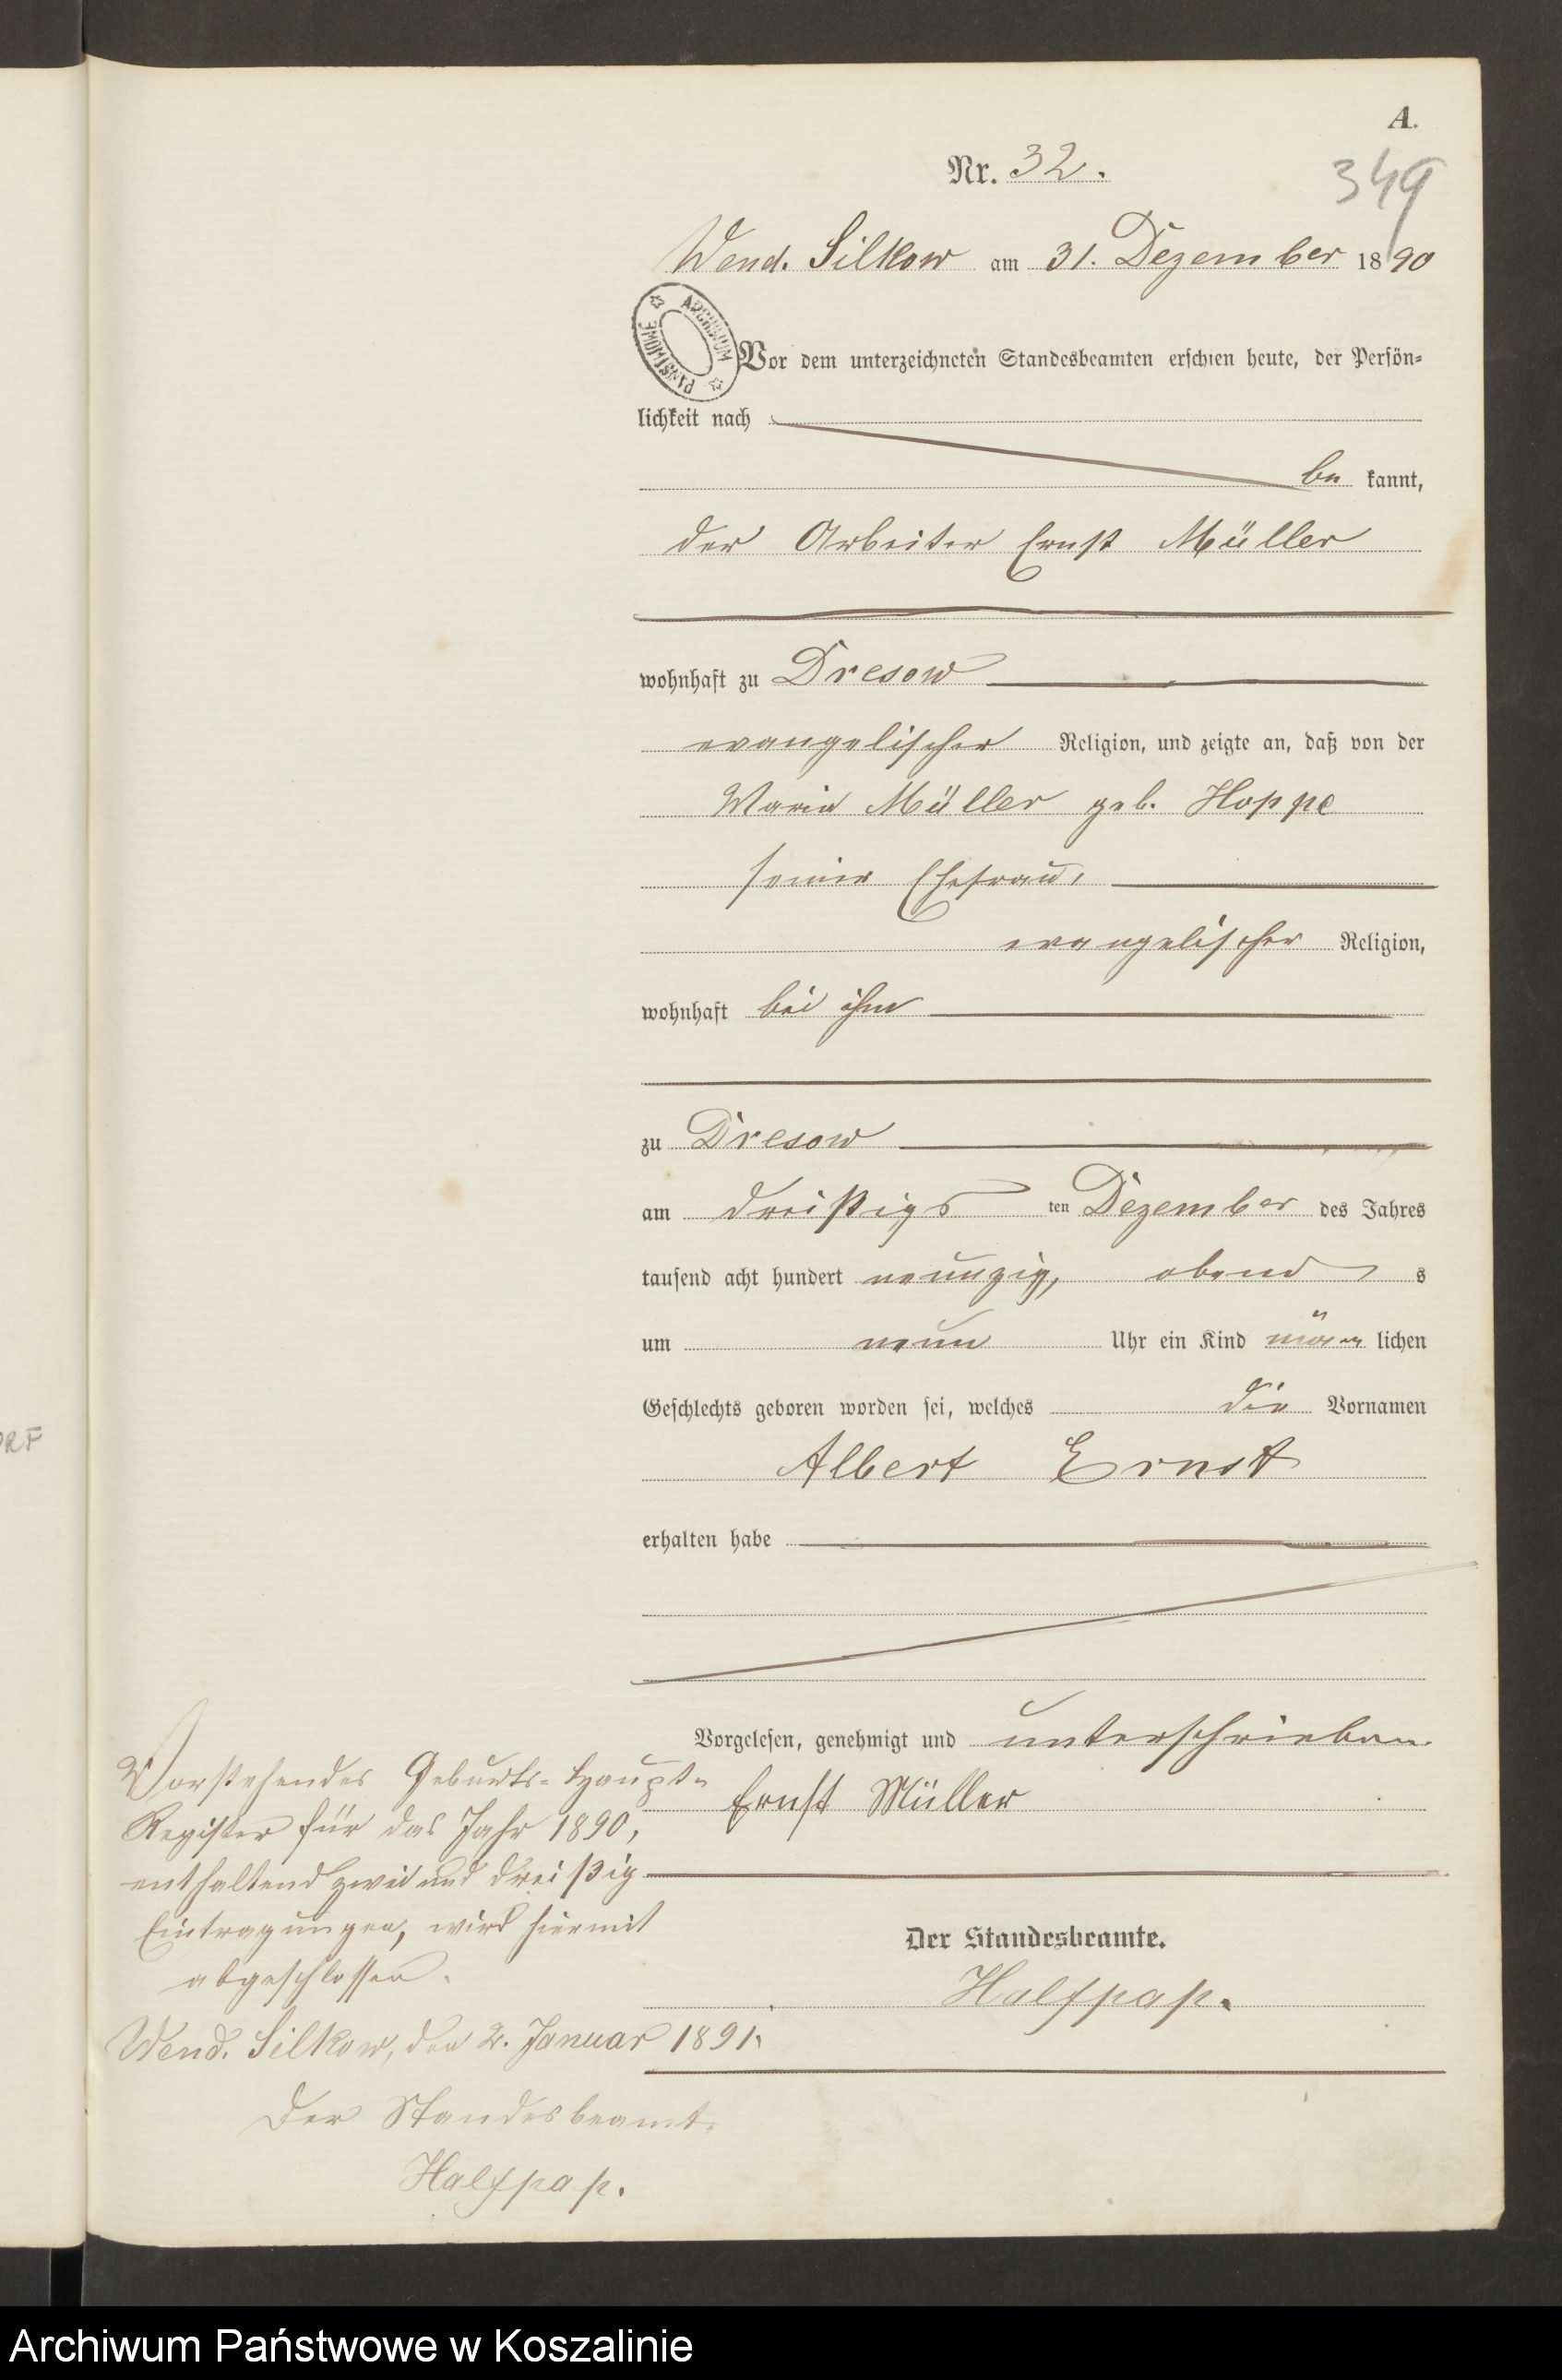 A.
Nr. 32.
349
Wend. Silkow am 31. Dezember 1890
ARCHIWUM PAŃSTWOWE
Vor dem unterzeichneten Standesbeamten erschien heute, der Persön-
lichkeit nach
be kannt,
der Arbeiter Ernst Müller
wohnhaft zu Dresow
evangelischer Religion, und zeigte an, daß von der
Maria Müller geb. Hoppe
seiner Ehefrau,
evangelischer Religion,
wohnhaft bei ihm
zu Dresow
am dreißigs ten Dezember des Jahres
tausend acht hundert neunzig, abend s
um neun Uhr ein Kind männ lichen
Geschlechts geboren worden sei, welches die Vornamen
Albert Ernst
erhalten habe
Vorgelesen, genehmigt und unterschrieben
Ernst Müller
Der Standesbeamte.
Halfpap.
Vorstehendes Geburts-Haupt-
Register für das Jahr 1890,
enthaltend zwei und dreißig
Eintragungen, wird hiermit
abgeschlossen.
Wend. Silkow, den 2. Januar 1891.
Der Standesbeamte
Halfpap.
ORF
Archiwum Państwowe w Koszalinie